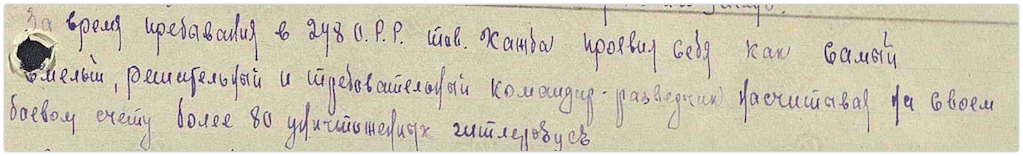 За время пребывания в 248 О.Р.Р. тов. Ханба проявил себя как самый
смелый, решительный и требовательный командир-разведчик насчитывая на своем
боевом счету более 80 уничтоженных гитлеровцев